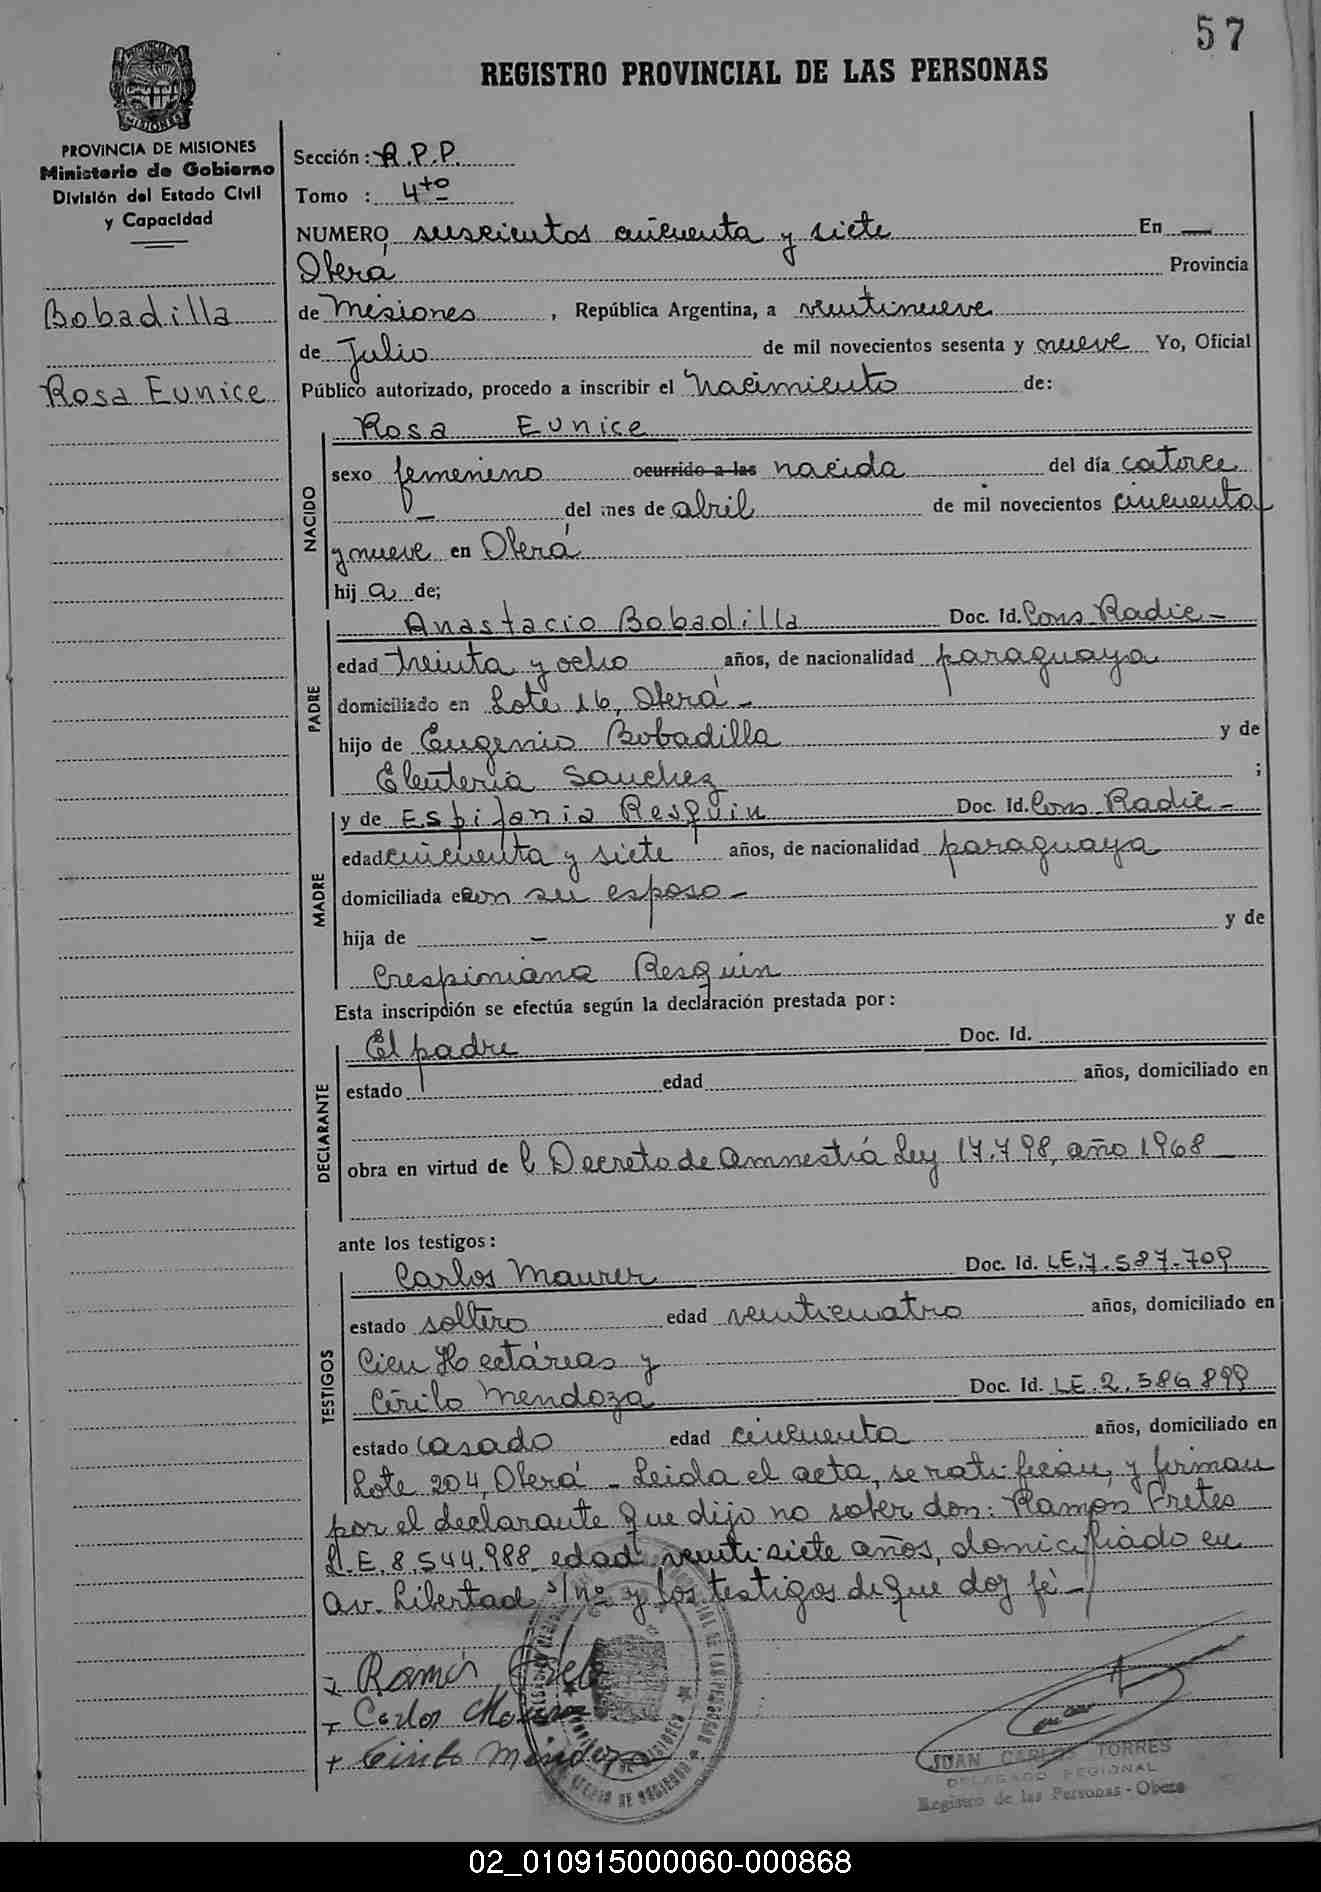 57
REGISTRO PROVINCIAL DE LAS PERSONAS
MISIONES
PROVINCIA DE MISIONES
Ministerio de Gobierno
División del Estado Civil
y Capacidad
Bobadilla
Rosa Eunice
Sección: A.P.P.
Tomo : 4to
NUMERO, cincuenta y siete En —
Oberá Provincia
de Misiones , República Argentina, a veintinueve
de Julio de mil novecientos sesenta y nueve Yo, Oficial
Público autorizado, procedo a inscribir el Nacimiento de:
NACIDO
Rosa Eunice
sexo femenino ocurrido a las nacida del día catorce
— del mes de abril de mil novecientos cincuenta
y nueve en Oberá
hij a de;
PADRE
Anastacio Bobadilla Doc. Id. Cons. Radic -
edad treinta y ocho años, de nacionalidad paraguaya
domiciliado en Lote 16, Oberá -
hijo de Eugenio Bobadilla y de
Eleuteria Sanchez ;
MADRE
y de Espifania Resquin Doc. Id. Cons. Radic -
edad cuicuenta y siete años, de nacionalidad paraguaya
domiciliada e con su esposo -
hija de — y de
Crespiniana Resquin
Esta inscripción se efectúa según la declaración prestada por:
DECLARANTE
El padre Doc. Id.
estado edad años, domiciliado en
obra en virtud de l Decreto de Amnestiá Ley 17.798, año 1968 —
ante los testigos:
TESTIGOS
Carlos Maurer Doc. Id. LE.7.587.709
estado soltero edad veinticuatro años, domiciliado en
Cien Hectáreas y
Cirilo Mendoza Doc. Id. LE.2.586 899
estado casado edad cincuenta años, domiciliado en
Lote 204, Oberá - Leida el acta, se ratifican, y firman
por el declarante que dijo no saber don: Ramón Fretes
L.E. 8.544.988 edad veinti siete años, domiciliado en
av. Libertad s/nº y los testigos de que doy fé -
x Ramón Fretes
x Carlos
+ Cirilo Mendoza
JUAN CARLOS TORRES
DELEGADO REGIONAL
Registro de las Personas - Obera
02_010915000060-000868